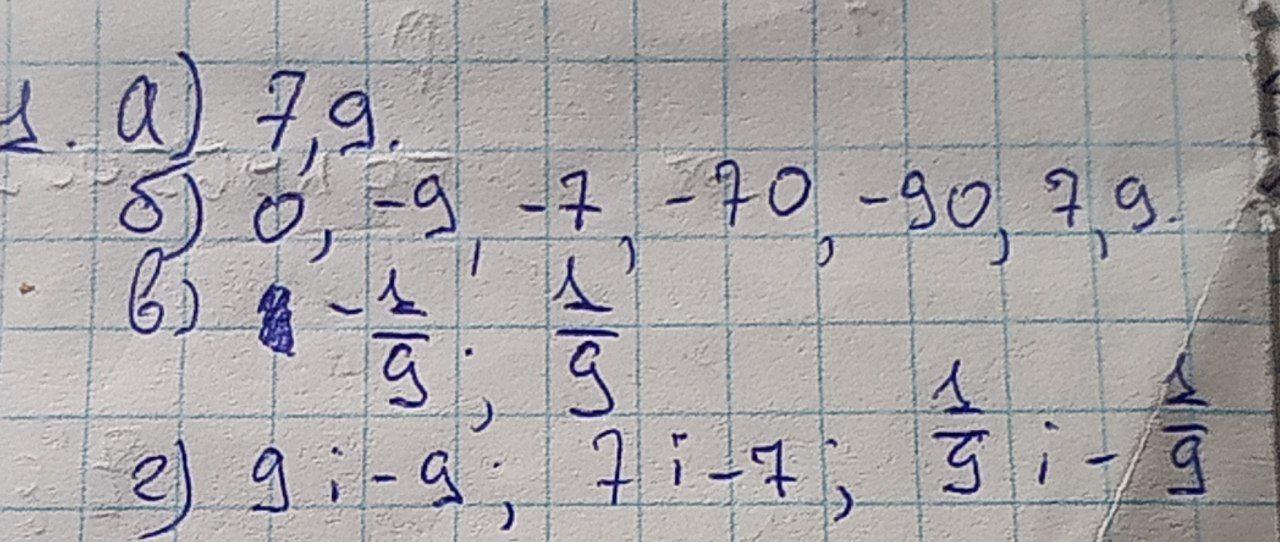 1. а) 7, 9.
б) 0, -9, -7, -70, -90, 7, 9.
в) -1/9; 1/9
г) 9 і -9; 7 і -7; 1/9 і -1/9